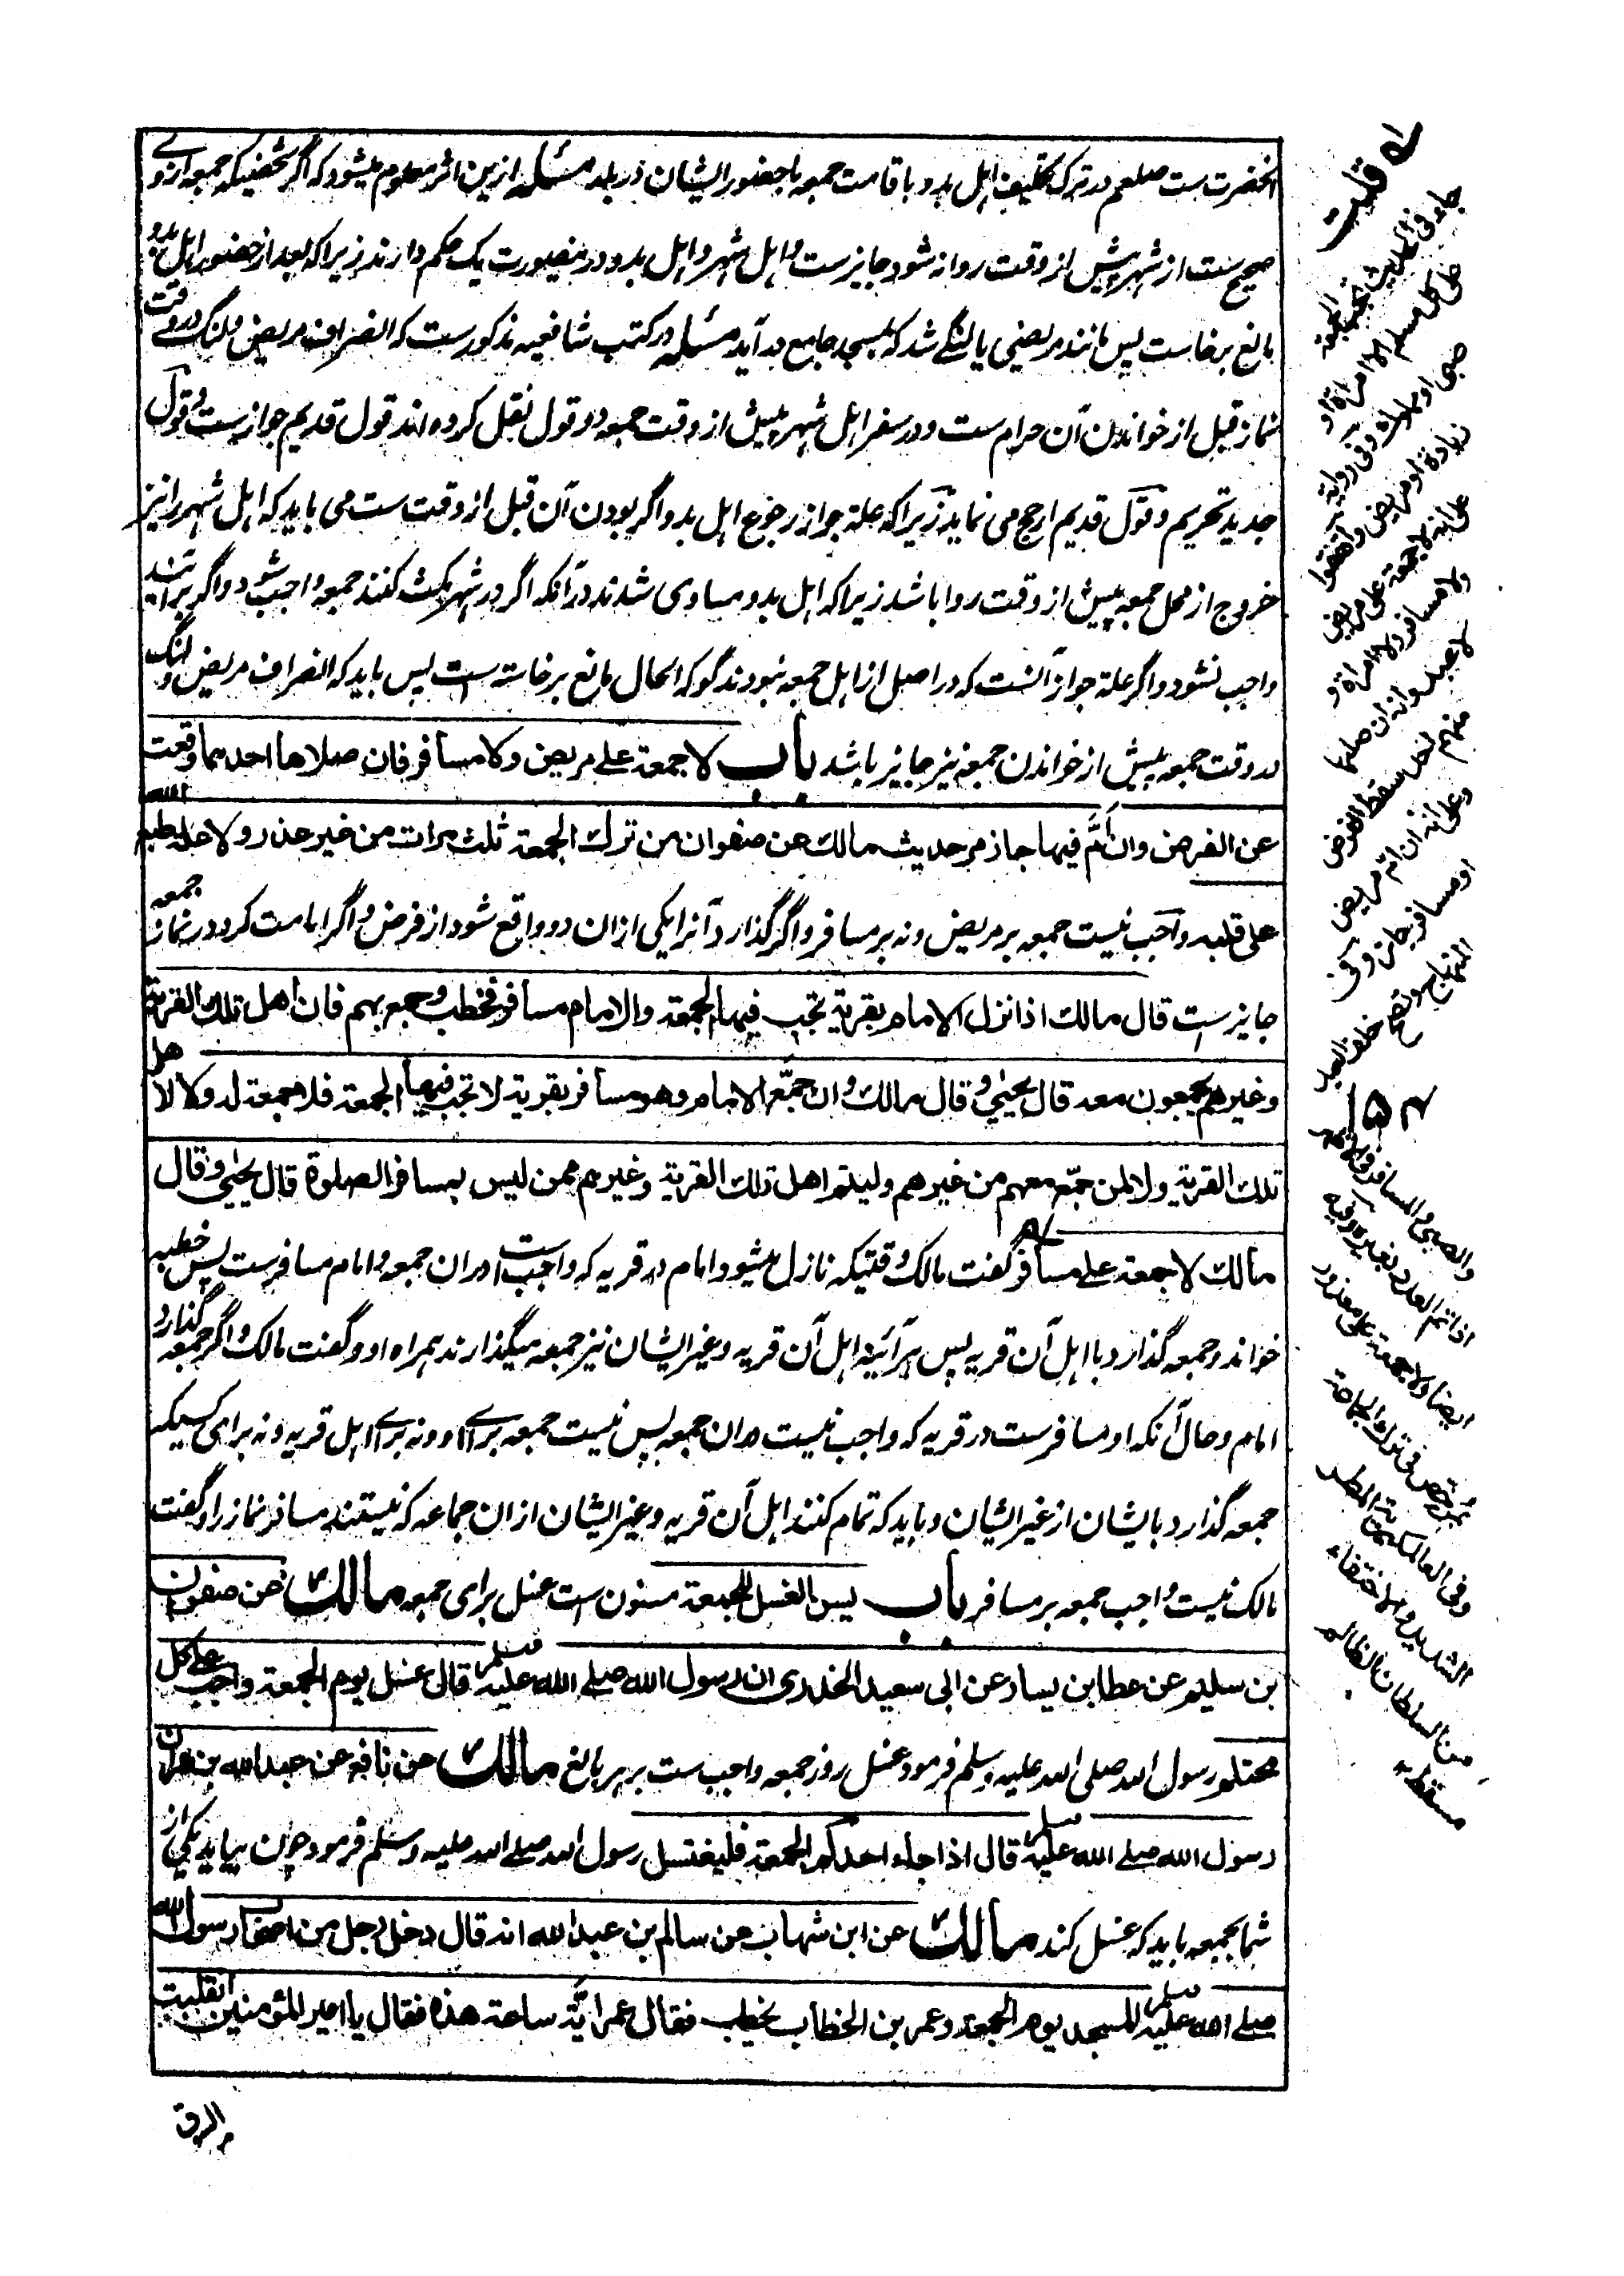 آنحضرت ست صلعم در ترک تکلیف اهل بدو باقامت جمعه با حضور ایشان در بلد مسئله ازین اثر معلوم میشود که اگر شخصیکه جمعه از وے
صحیح ست از شهر پیش از وقت روانه شود جایز ست و اهل شهر و اهل بدو درینصورت یک حکم دارند زیرا که بعد از حضور اهل بدو
مانع برخاست پس مانند مریضی یا لنگے شد که بمسجد جامع در آید مسئله در کتب شافعیه مذکور ست که انصراف مریض و لنگ در وقت
نماز قبل از خواندن آن حرام ست و در سفر اهل شهر پیش از وقت جمعه دو قول نقل کرده اند قول قدیم جواز ست و قول
جدید تحریم و قول قدیم ارجح می نماید زیرا که علة جواز رجوع اهل بدو اگر بودن آن قبل از وقت ست می باید که اهل شهر را نیز
خروج از محل جمعه پیش از وقت روا باشد زیرا که اهل بدو مساوی شدند در آنکه اگر در شهر مکث کنند جمعه واجب شود و اگر برآیند
واجب نشود و اگر علة جواز آنست که در اصل از اهل جمعه نبودند گو که الحال مانع برخاسته است پس باید که انصراف مریض و لنگ
در وقت جمعه پیش از خواندن جمعه نیز جایز باشد باب لا جمعة علے مریض ولا مسافر فان صلاها احدهما وقعت
عن الفرض وان أَمَّ فیها جاز مر حدیث مالك عن صفوان من ترك الجمعة ثلث مرات من غیر عذر ولا علة طبع الله
علی قلبه واجب نیست جمعه بر مریض و نه بر مسافر و اگر گذارد آنرا یکی ازان دو واقع شود از فرض و اگر امامت کرد در نماز جمعه
جایز ست قال مالك اذا نزل الامام بقریة تجب فیها الجمعة والامام مسافر فخطب وجمع بهم فان اهل تلك القریة
وغیرهم یجمعون معه قال یحیٰی وقال مالك وان جمّع الامام وهو مسافر بقریة لا تجب فیها الجمعة فلا جمعة له ولا لاهل
تلك القریة ولا لمن جمّع معهم من غیرهم ولیتم اهل تلك القریة وغیرهم ممن لیس بمسافر الصلوة قال یحیٰی وقال
مالك لا جمعة علے مسافر گفت مالک وقتیکه نازل میشود امام در قریه که واجب است دران جمعه و امام مسافر ست پس خطبه
خواند و جمعه گذارد با اهل آن قریه پس هر آئینه اهل آن قریه و غیر ایشان نیز جمعه میگذارند همراه او و گفت مالک و اگر جمعه گذارد
امام و حال آنکه او مسافر ست در قریه که واجب نیست دران جمعه پس نیست جمعه برے او و نه برے اهل قریه و نه برای کسیکه
جمعه گذارد با ایشان از غیر ایشان و باید که تمام کنند اهل آن قریه و غیر ایشان ازان جماعه که نیستند مسافر نماز را و گفت
مالک نیست واجب جمعه بر مسافر باب یسن الغسل للجمعة مسنون است غسل برای جمعه مالك عن صفوان
بن سلیم عن عطا بن یسار عن ابی سعید الخدری ان رسول الله صلے الله علیه وسلم قال غسل یوم الجمعة واجب علے کل
محتلم رسول الله صلی الله علیه وسلم فرمود غسل روز جمعه واجب ست بر هر بالغ مالك عن نافع عن عبد الله بن عمر ان
رسول الله صلے الله علیه وسلم قال اذا جاء احدکم الجمعة فلیغتسل رسول الله صلے الله علیه وسلم فرمود چون بیاید یکی از
شما بجمعه باید که غسل کند مالك عن ابن شهاب عن سالم بن عبد الله انه قال دخل رجل من اصحاب رسول الله
صلے الله علیه وسلم المسجد یوم الجمعة وعمر بن الخطاب یخطب فقال عمر ایّة ساعة هذه فقال یا امیر المؤمنین انقلبت
من السوق
له قلت
جاء فی الحدیث تجب الجمعة
علی کل مسلم الا امرأة او
صبی او مملوك وفی روایة
زیادة او مریض واتفقوا
علی انه لا جمعة علی مریض
ولا مسافر ولا امرأة و
لا عبد وانه ان صلها
منهم احد سقط الفرض
وعلی انه ان ام مریض
او مسافر جاز وفی
المنهاج وتصح خلف العبد
۱۵۴
والصبی والمسافر فی الاظهر
اذا تم العدد بغیره وفیه
ایضا ولا جمعة علی معذور
بمرخص فی ترك الجماعة
وفی العالمگیریة المطر
الشدید والاختفاء
من السلطان الظالم
مسقط